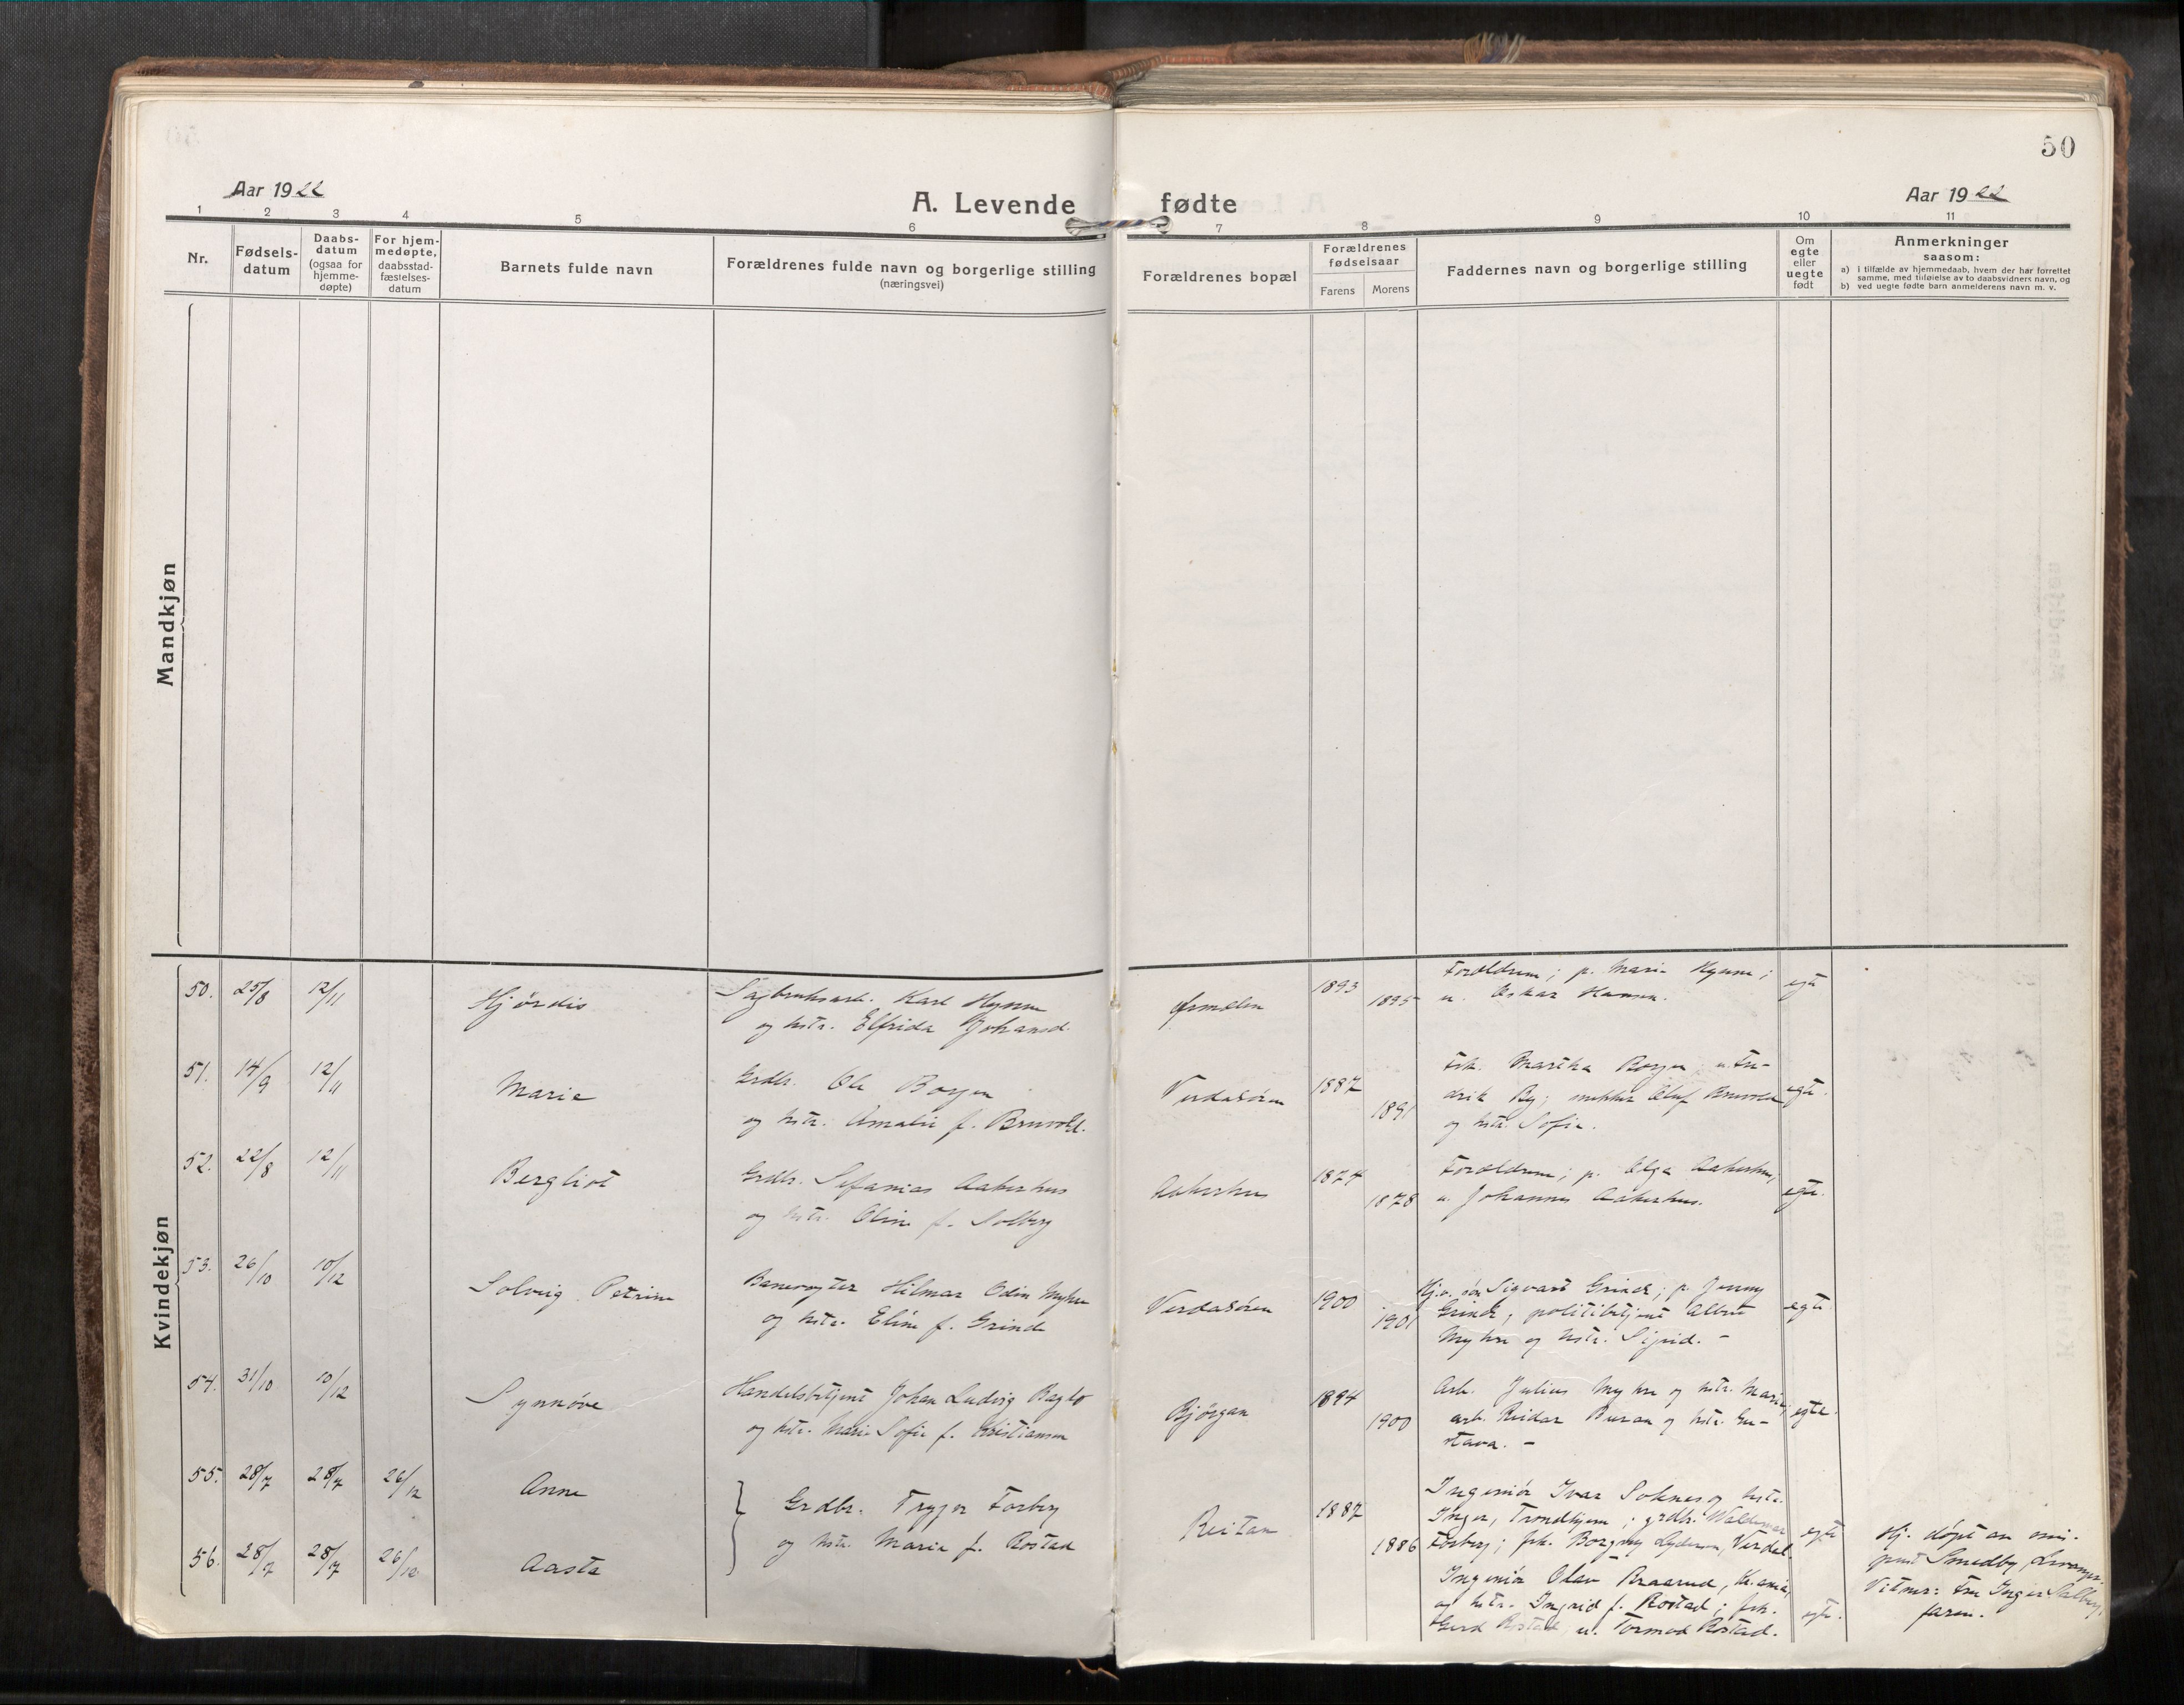 50
Aar 1922
A. Levende fødte
Aar 1922
1 2 3 4 5 6 7 8 9 10 11
Nr.
Fødsels-
datum
Daabs-
datum
(ogsaa for
hjemme-
døpte)
For hjem-
medøpte,
daabsstad-
fæstelses-
datum
Barnets fulde navn
Forældrenes fulde navn og borgerlige stilling
(næringsvei)
Forældrenes bopæl
Forældrenes
fødselsaar
Farens
Morens
Faddernes navn og borgerlige stilling
Om
egte
eller
uegte
født
Anmerkninger
saasom:
a) i tilfælde av hjemmedaab, hvem der har forrettet
samme, med tilføielse av to daabsvidners navn, og
b) ved uegte fødte barn anmelderens navn m. v.
Mandkjøn
Kvindekjøn
50. 25/8 12/11 Hjørdis
Sagbruksarb. Karl Hynne
og hstr. Elfrida Johansd.
Ørmelen
1893
1895
Forældrene; p. Marie Hynne;
u. Oskar Hansen.
egte
51. 14/9 12/11 Marie
Grdbr. Ole Borgen
og hstr. Amalie f. Bruvold.
Verdalsøren
1887
1891
Frk. Martha Borgen, u. Fre-
drik By; snekker Oluf Bruvold
og hstr. Sofie.
egte.
52. 22/8 12/11 Bergliot
Grdbr. Sefanias Aakerhus
og hstr. Oline f. Solberg
Aakerhus
1874
1878
Forældrene; p. Olga Aakerhus,
u. Johannes Aakerhus.
egte.
53. 26/10 10/12 Solveig Petrine
Banevogter Hilmar Odin Myhre
og hstr. Eline f. Grinde
Verdalsøren
1900
1901
Sigvart Grinde; p. Jenny
Grinde, politibetjent Albert
Myhre og hstr. Sigrid. -
egte.
54. 31/10 10/12 Synnøve
Handelsbetjent Johan Ludvig Baglo
og hstr. Marie Sofie f. Kristiansen
Bjørgan
1894
1900
Arb. Julius Myhre og hstr. Marie,
arb. Reidar Buran og hstr. Gu-
stava. -
egte.
55. 28/7 28/7 26/12 Anne
56. 28/7 28/7 26/12 Aasta
Grdbr. Trygve Forberg
og hstr. Marie f. Rostad
Reitan
1887
1886
Ingeniør Ivar Soknes og hstr.
Inger, Trondhjem; grdbr. Waldemar
Forberg; frk. Borgny Lyderson, Verdal.
egte
Ingeniør Olav Braarud, Kr.ania,
og hstr. Ingrid f. Rostad; frk.
Gerd Rostad, u. Tormod Rostad.
egte.
Hj. døpt av
Smedby, Levanger.
Vitner: Fru Inger Salberg,
faren.